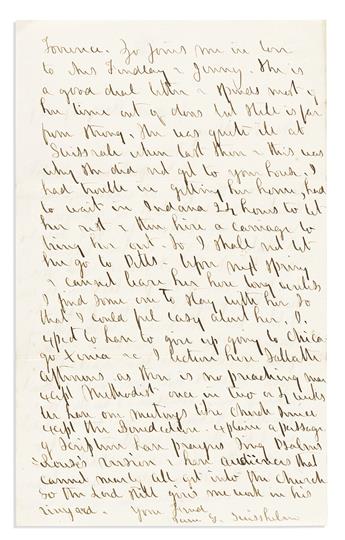 Torrence. Zo joins me in love
to Mrs Findlay & Jenny. She is
a good deal better & spends most of
her time out of doors but still is far
from strong. She was quite ill at
Swissvale when last there & this was
why she did not get to your house. I
had trouble in getting her home, had
to wait in Indiana 24 hours to let
her rest & then hire a carriage to
bring her out. So I shall not let
her go to Pitts- until next Spring
& cannot leave her here long unless
I find some one to stay with her so
that I could feel easy about her. I
expect to have to give up going to Chica-
go Xenia &c I lecture here Sabbath
afternoons as there is no preaching near
except Methodist once in two or 3 weeks
We have our meetings like Church Service
except the Benediction- explain a passage
of Scripture have prayers Sing Psalms
Rouse's version & have audiences that
cannot nearly all get into the Church
So the Lord still gives me work in his
vineyard. Your friend
Jane G. Swisshelm